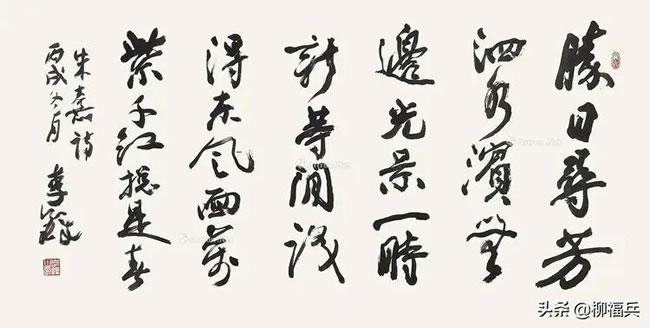 勝日尋芳
泗水濱無
邊光景一時
新等閒識
得東風面萬
紫千紅總是春
朱熹詩
丙戌月 李鐸
头条 @柳福兵